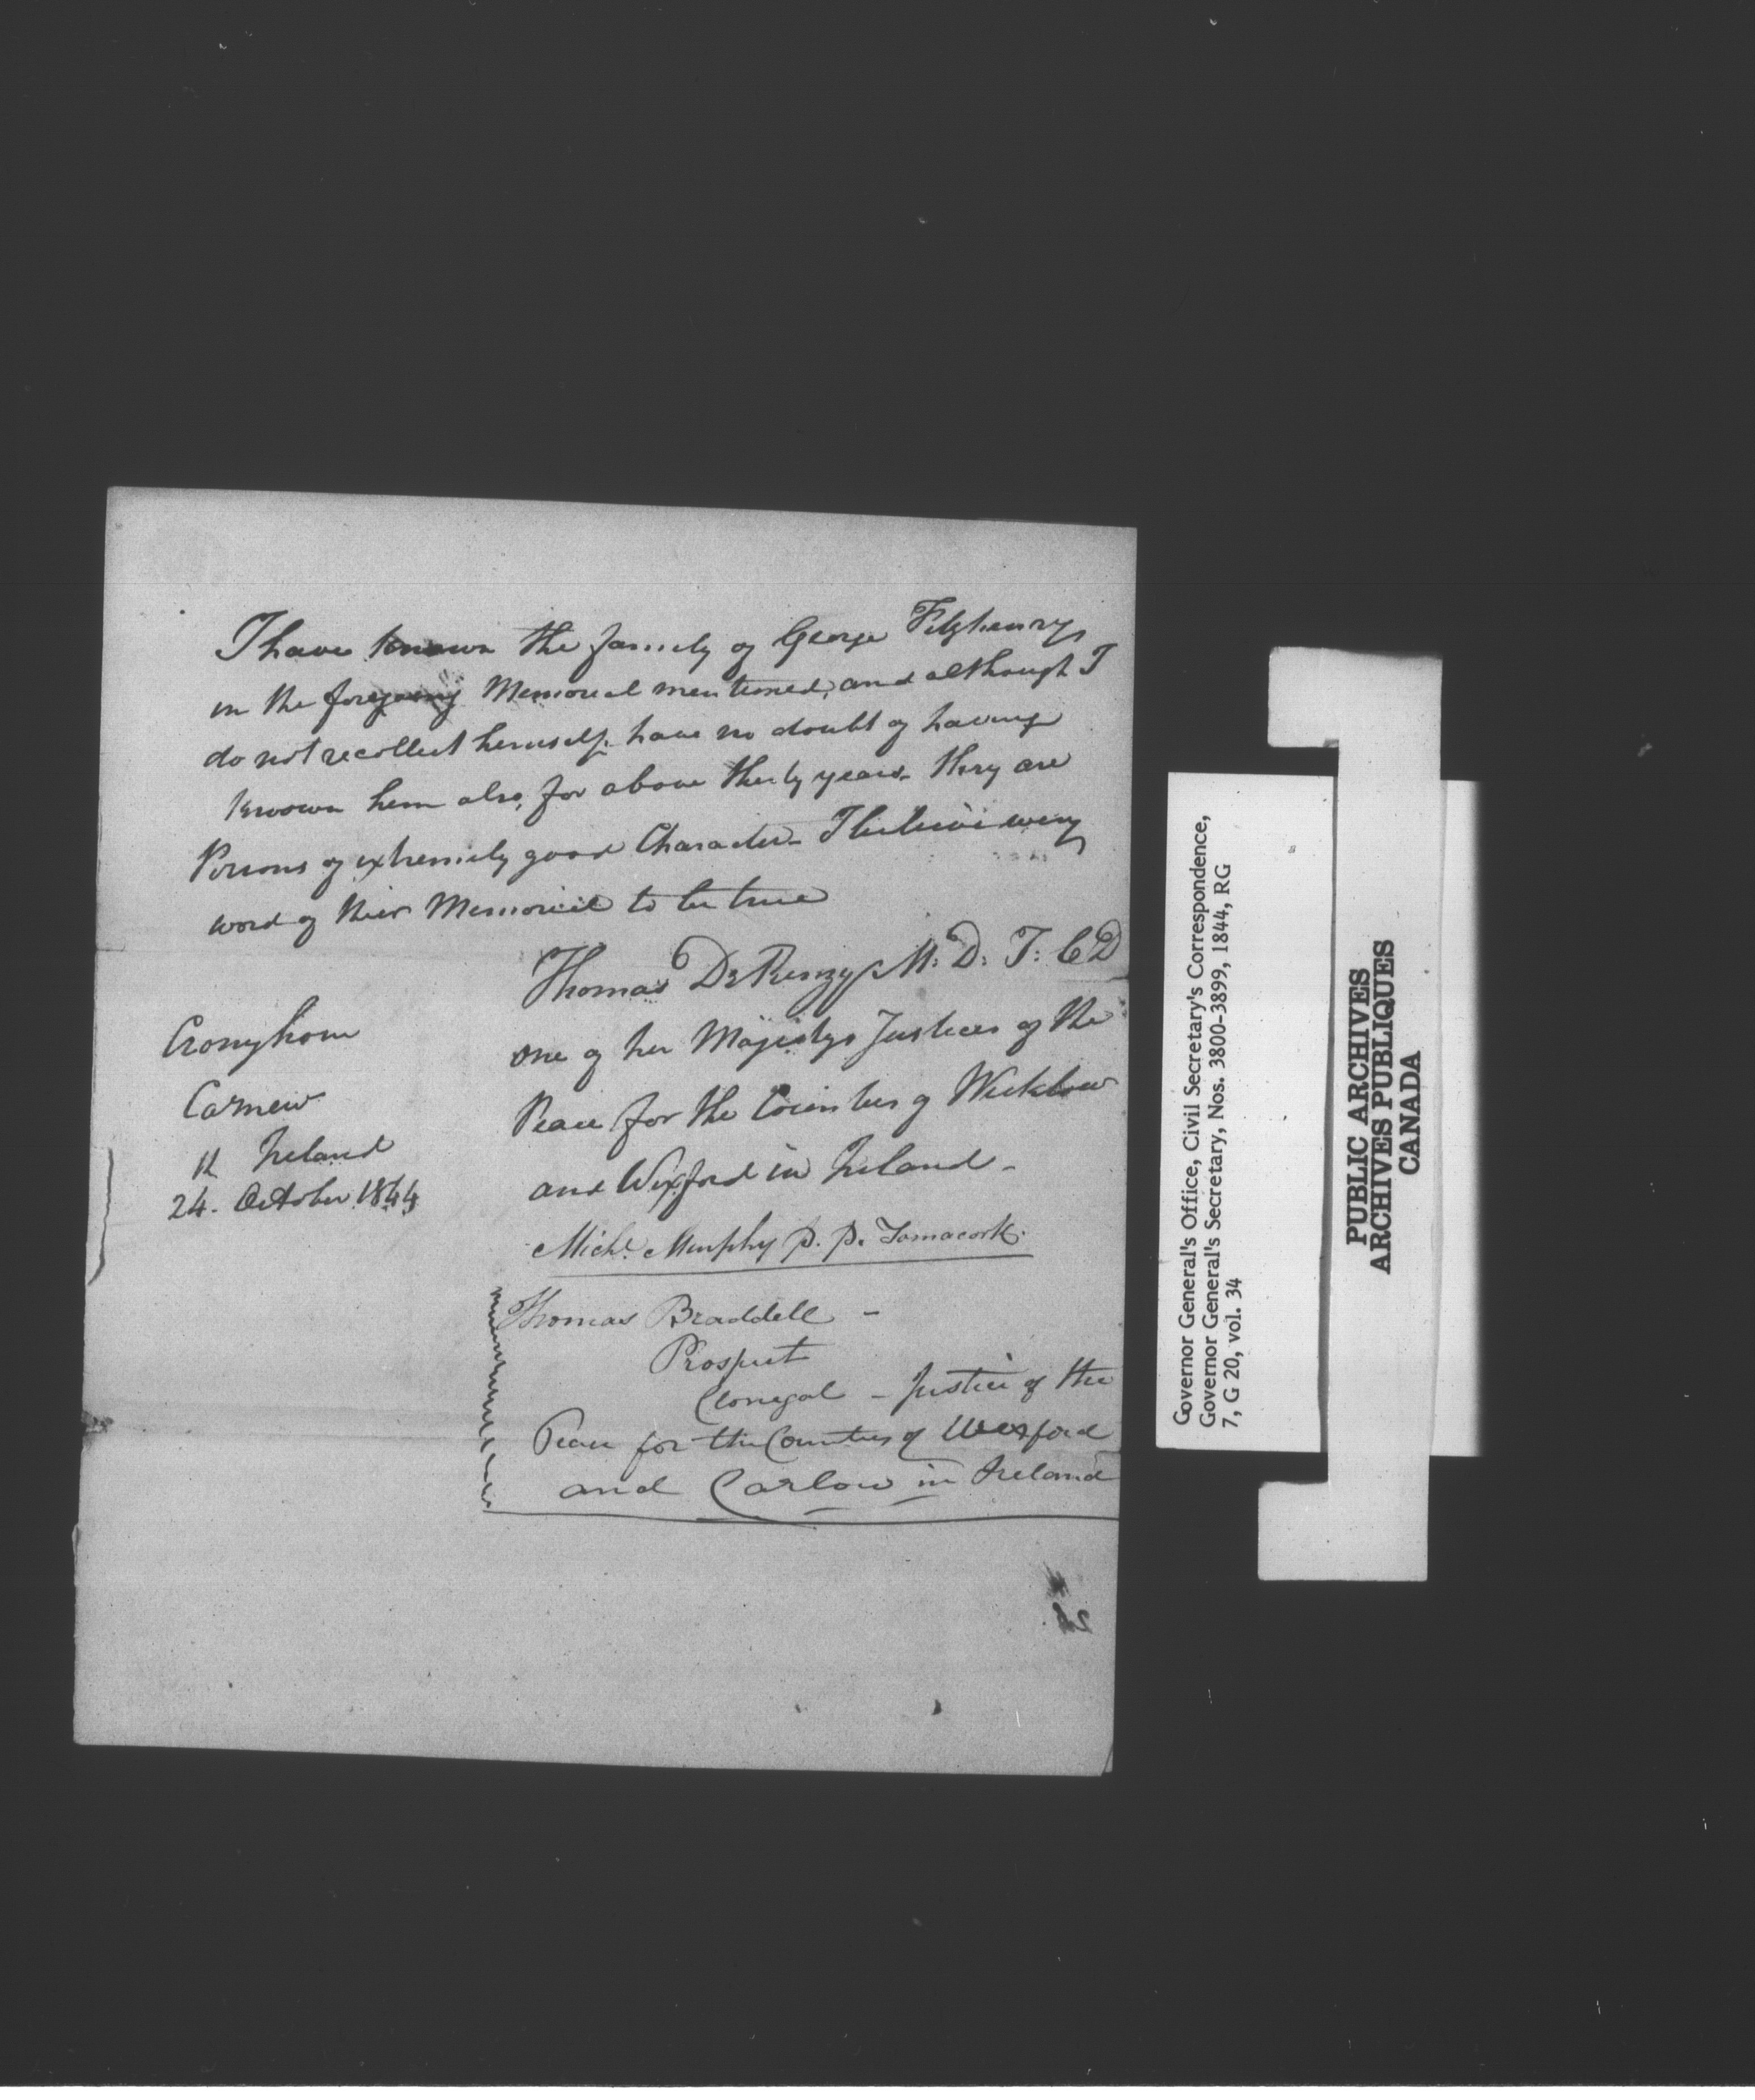 I have known the family of George Fitzhenry
in the foregoing Memorial mentioned, and although I
do not recollect himself have no doubt of having
known him also, for above thirty years. they are
Persons of extremely good Character. I believe every
word of their Memorial to be true
Thomas De Renzy M: D: T: C D
one of her Majestys Justices of the
Peace for the Counties of Wicklow
and Wexford in Ireland -
Cronyhorn
Carnew
Ireland
24. October 1844
Michl. Murphy P. P. Tomacork.
Thomas Braddell -
Prospect
Clonegal - Justice of the
Peace for the Counties of Wexford
and Carlow in Ireland
Governor General's Office, Civil Secretary's Correspondence,
Governor General's Secretary, Nos. 3800-3899, 1844, RG
7, G 20, vol. 34
PUBLIC ARCHIVES
ARCHIVES PUBLIQUES
CANADA